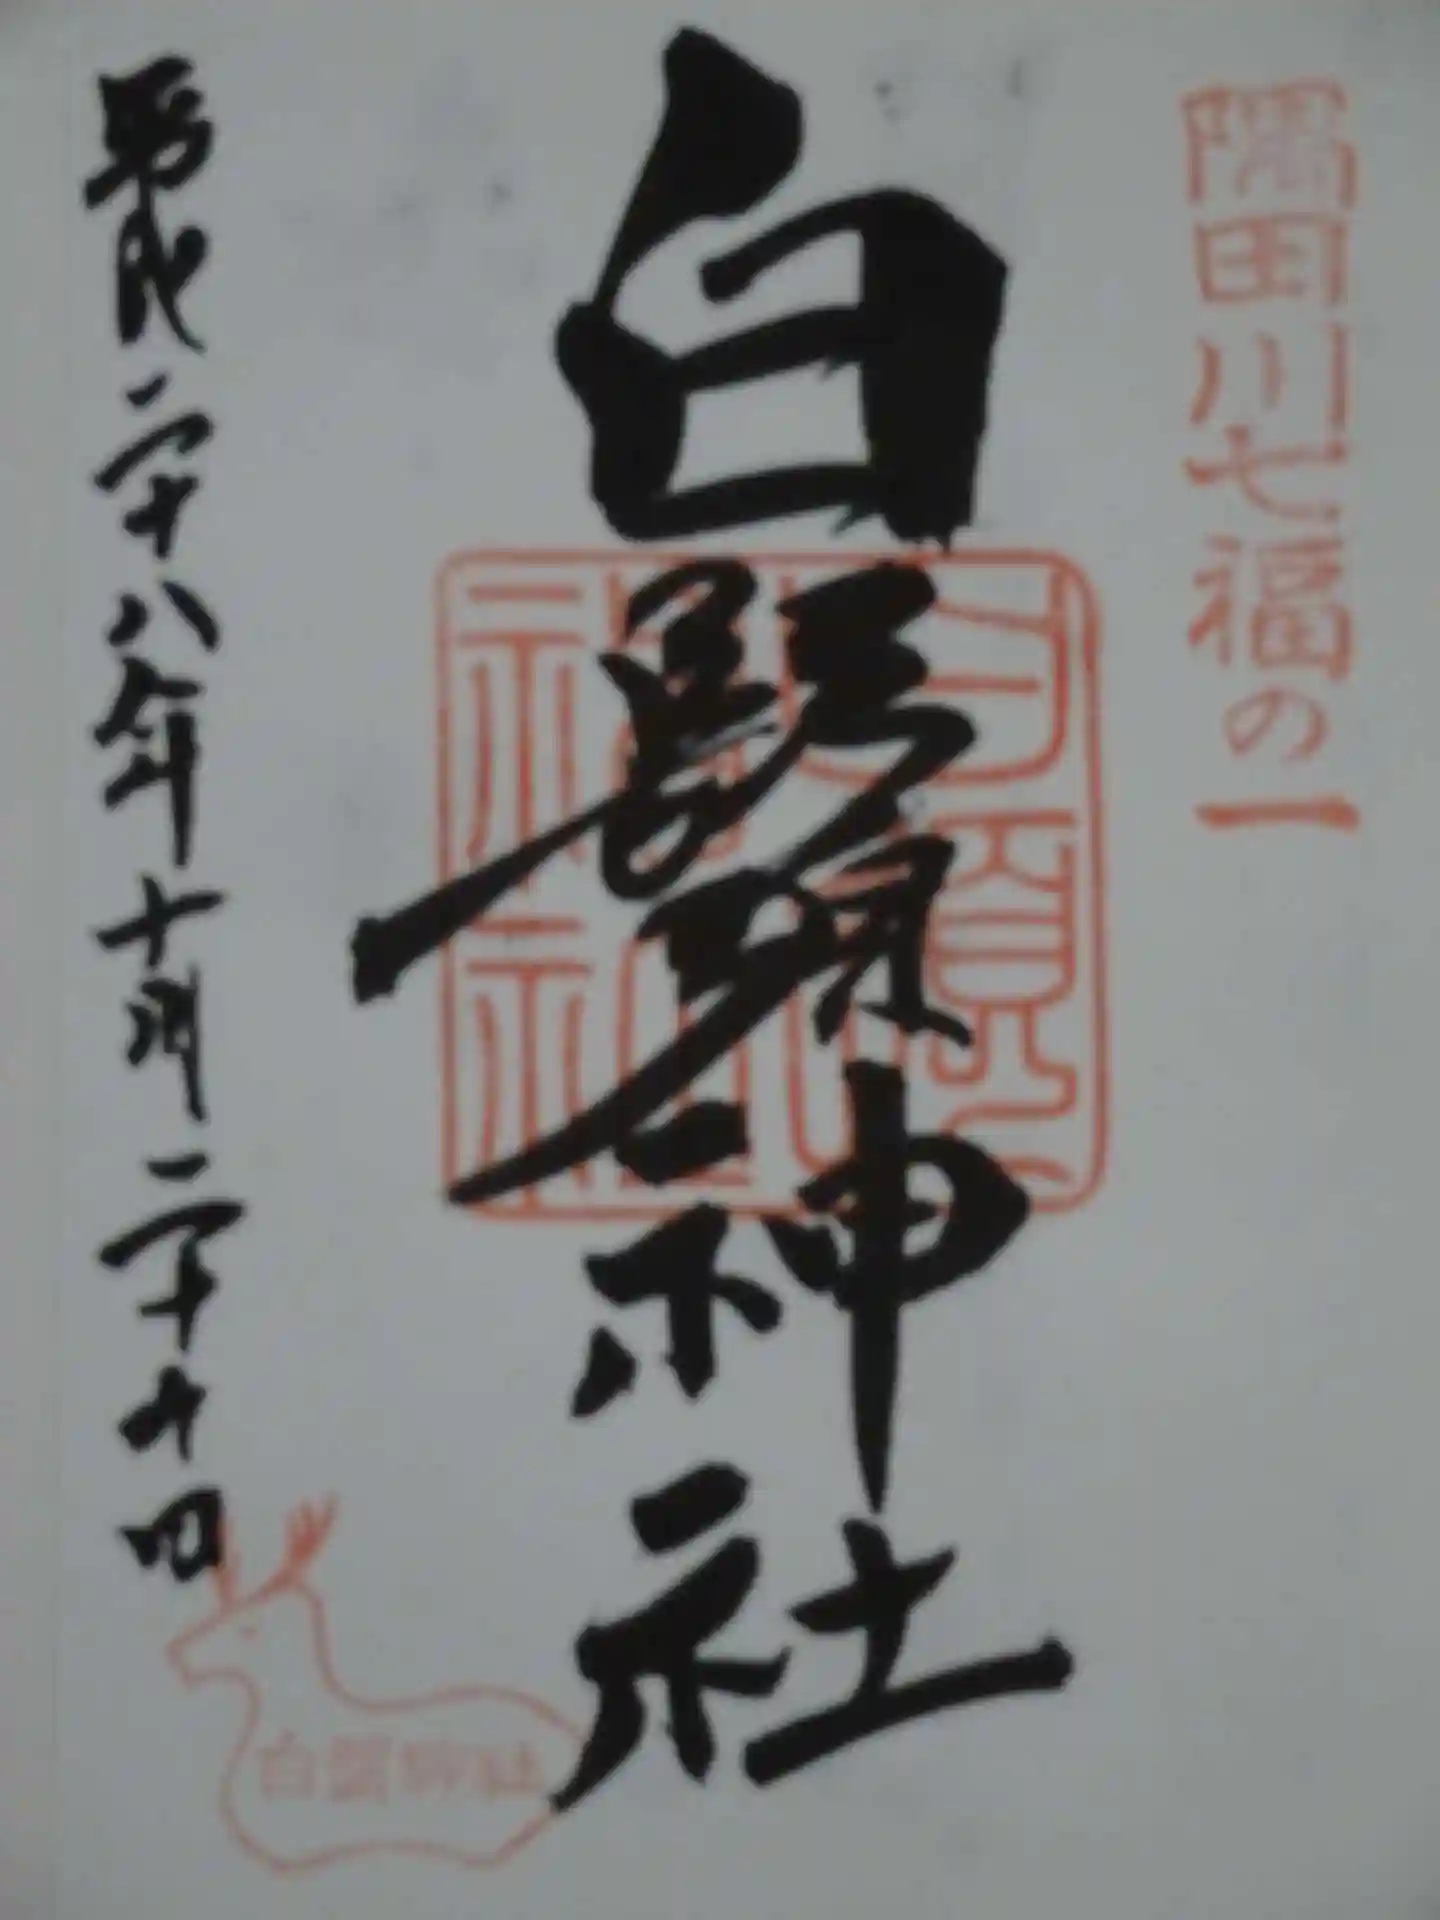 隅田川七福の一
白鬚神社
白鬚神社
平成二十八年十月二十四
白鬚神社